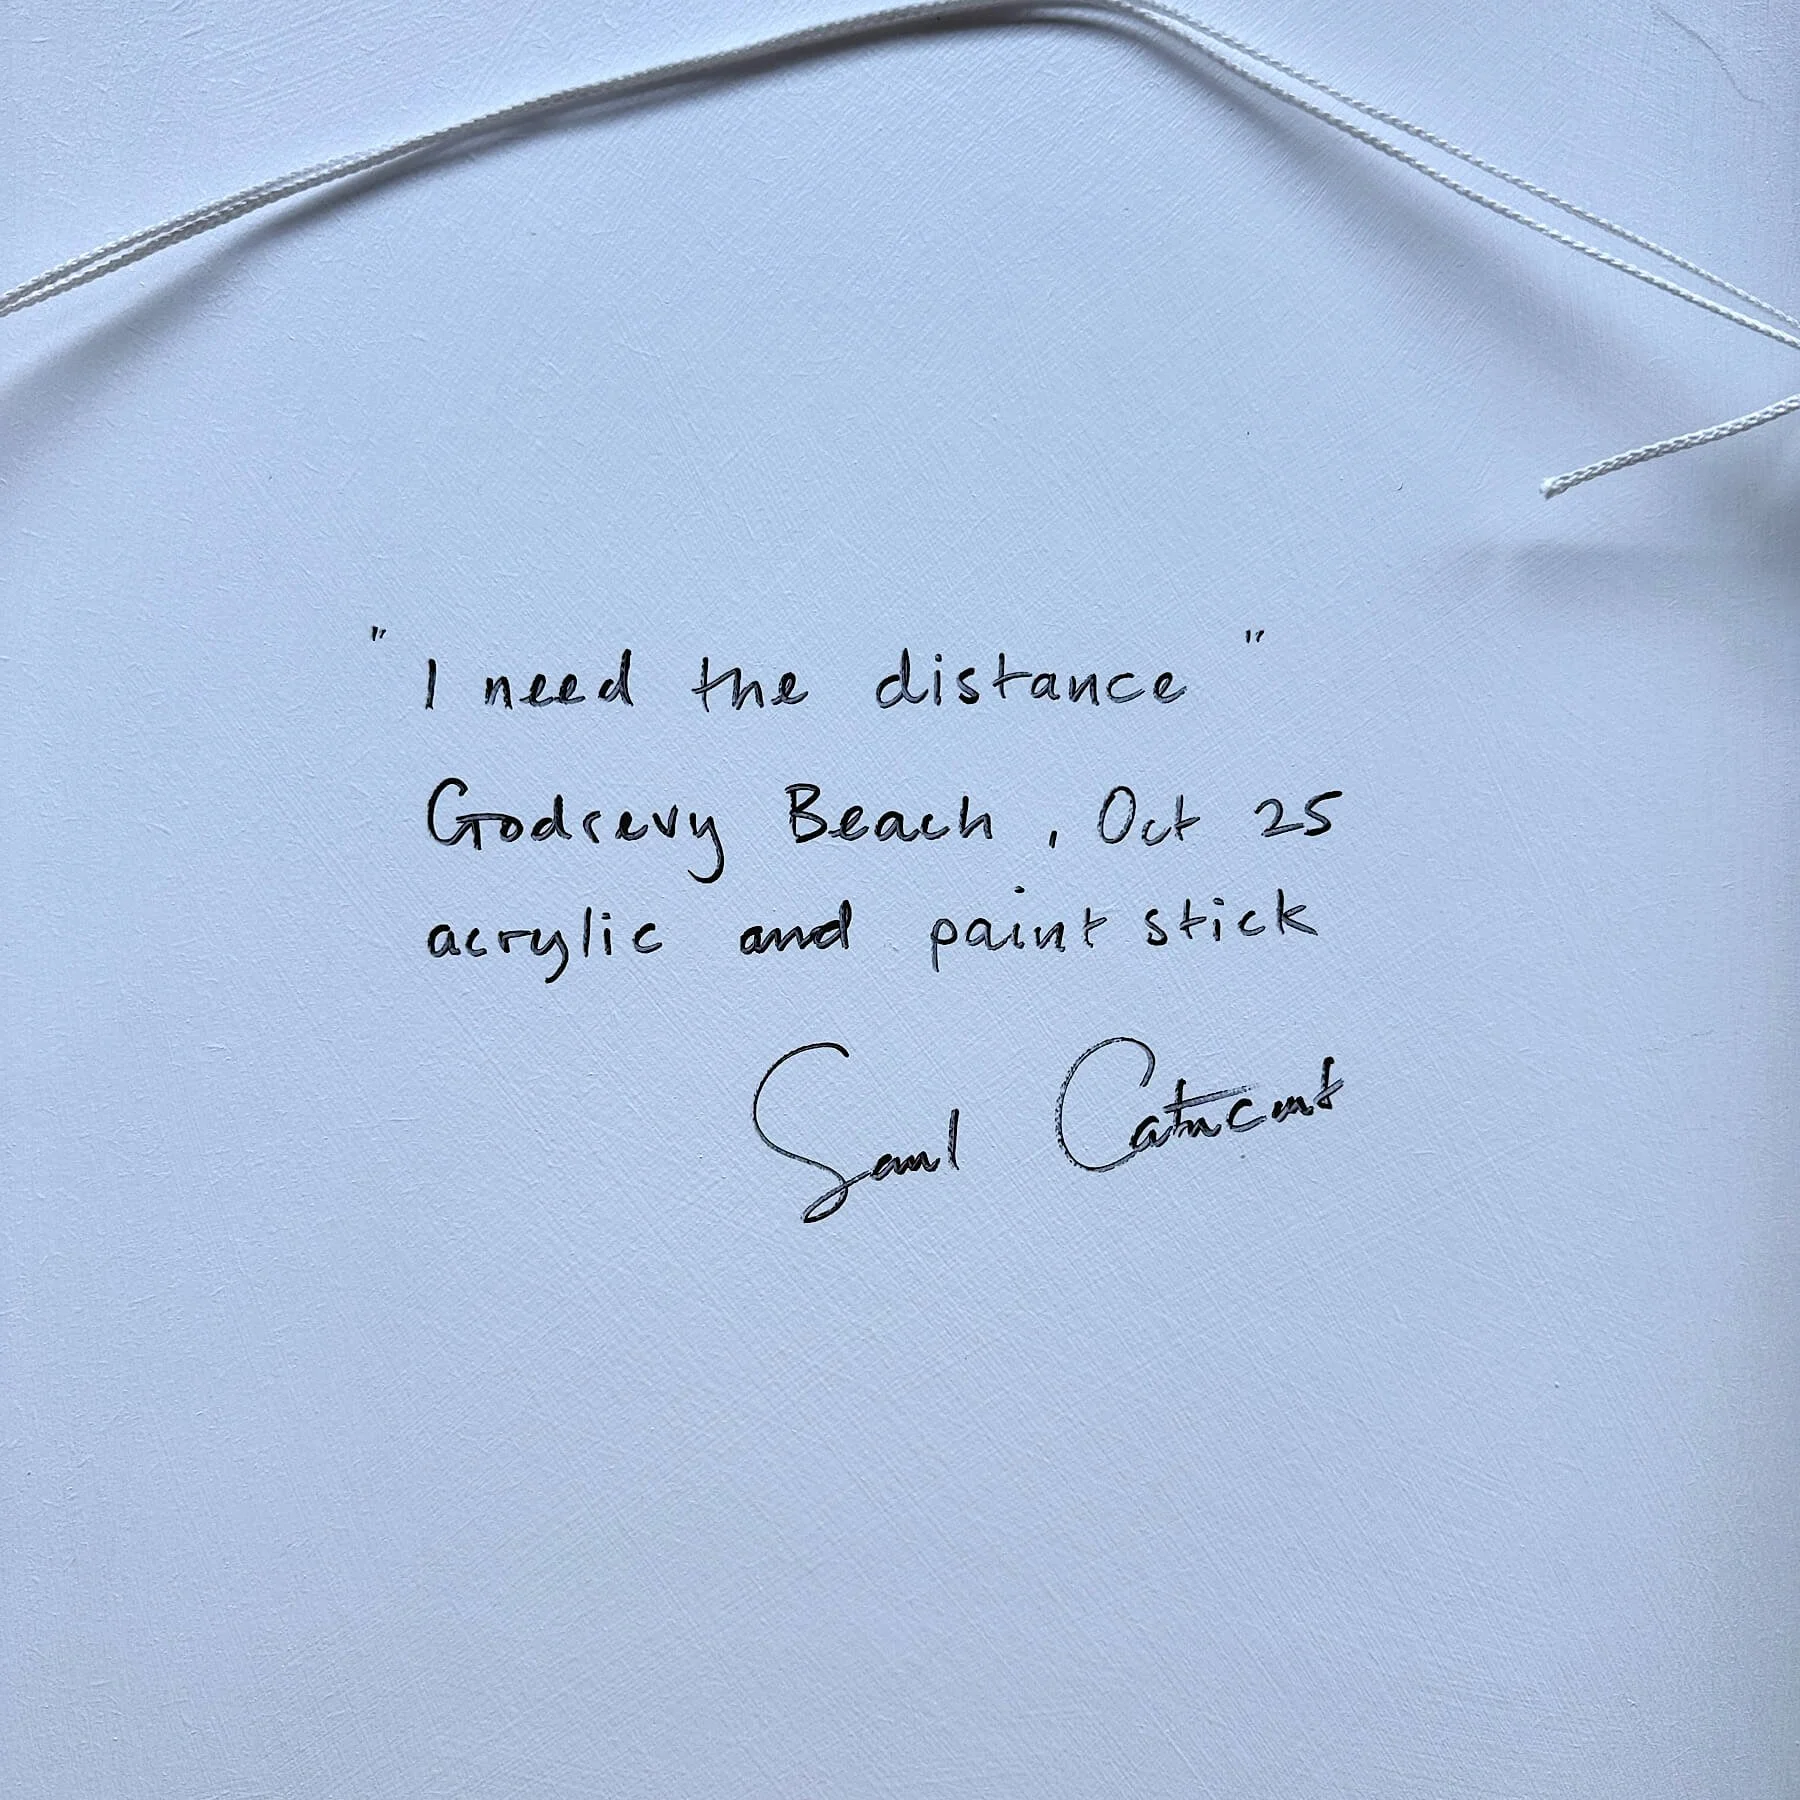 "I need the distance"
Godrevy Beach, Oct 25
acrylic and paint stick
Saul Cathcart